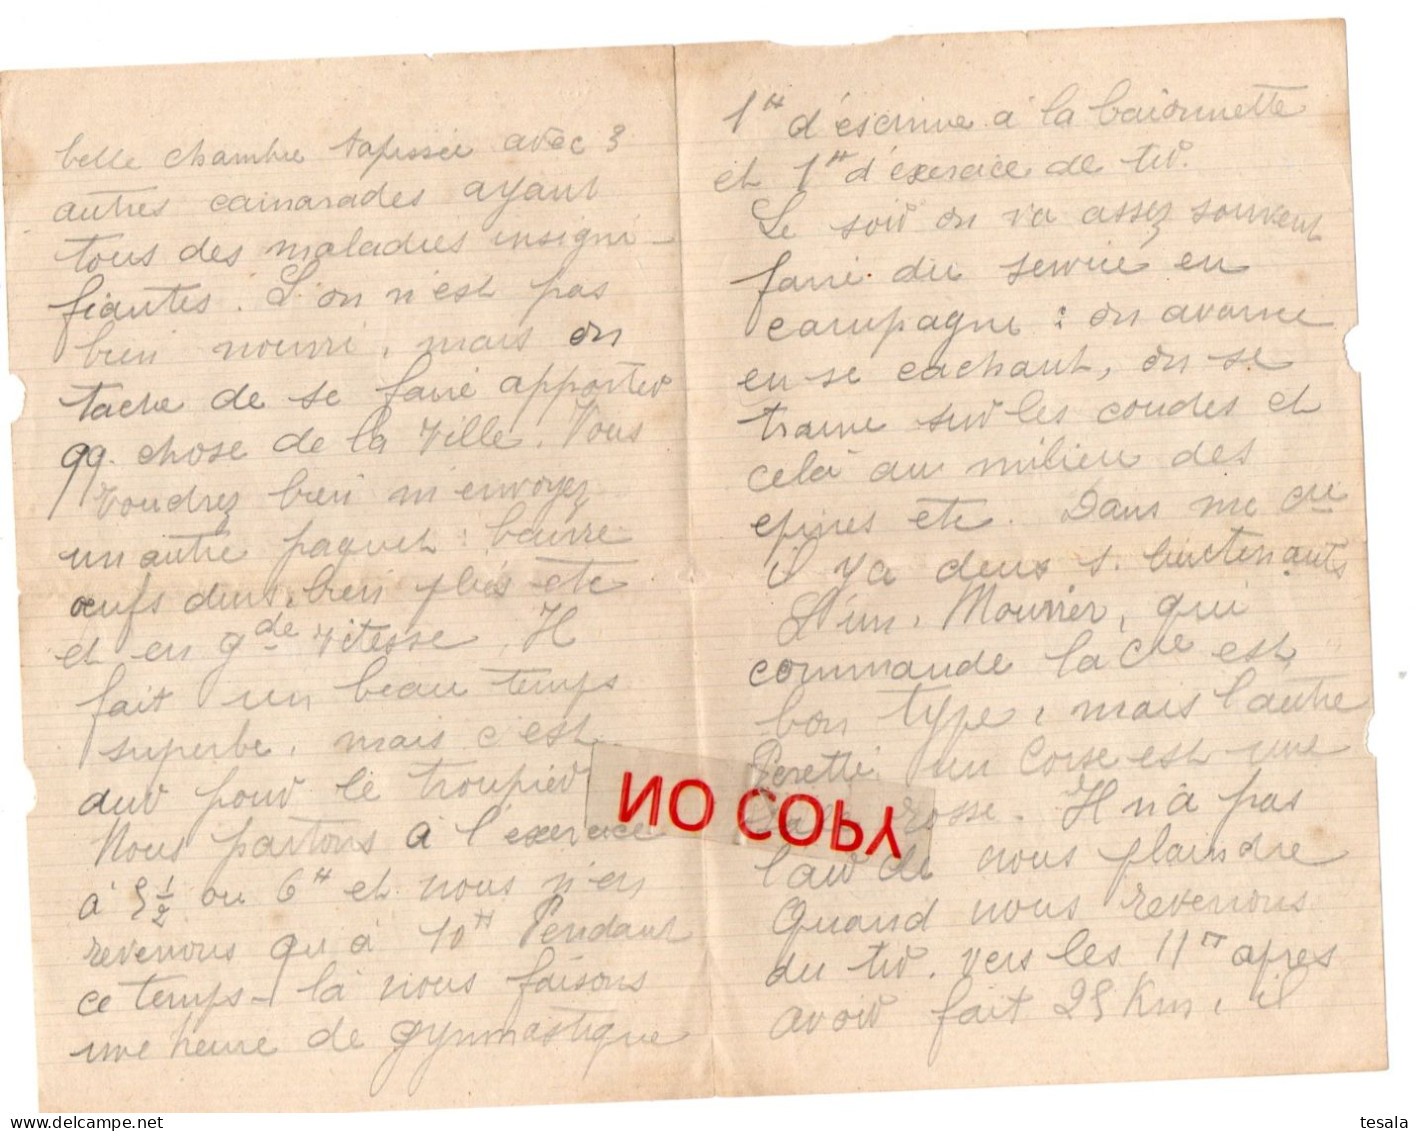 belle chambre tapissée avec 3
autres camarades ayant
tous des maladies insigni-
fiantes. L'on n'est pas
bien nourri, mais on
tache de se faire apporter
qq. chose de la ville. Vous
voudrez bien m'envoyez
un autre paquet : beurre
œufs durs, bien pliés etc
et en gde vitesse. Il
fait un beau temps
superbe, mais c'est
dur pour le troupier
Nous partons à l'exercice
à 5 1/2 ou 6H et nous n'en
revenons qu'à 10H Pendant
ce temps-là nous faisons
une heure de gymnastique
1H d'escrime à la baïonnette
et 1H d'exercice de tir.
Le soir on va assez souvent
faire du service en
campagne : on avance
en se cachant, on se
traine sur les coudes et
celà au milieu des
epines etc. Dans ma Cie
il y a deux s. lieutenants
L'un, Mounier, qui
commande la Cie est
bon type, mais l'autre
Peretti, un Corse est une
rosse. Il n'a pas
l'air de nous plaindre
Quand nous revenons
du tir, vers les 11H apres
avoir fait 25 Km, il
NO COPY
tesala